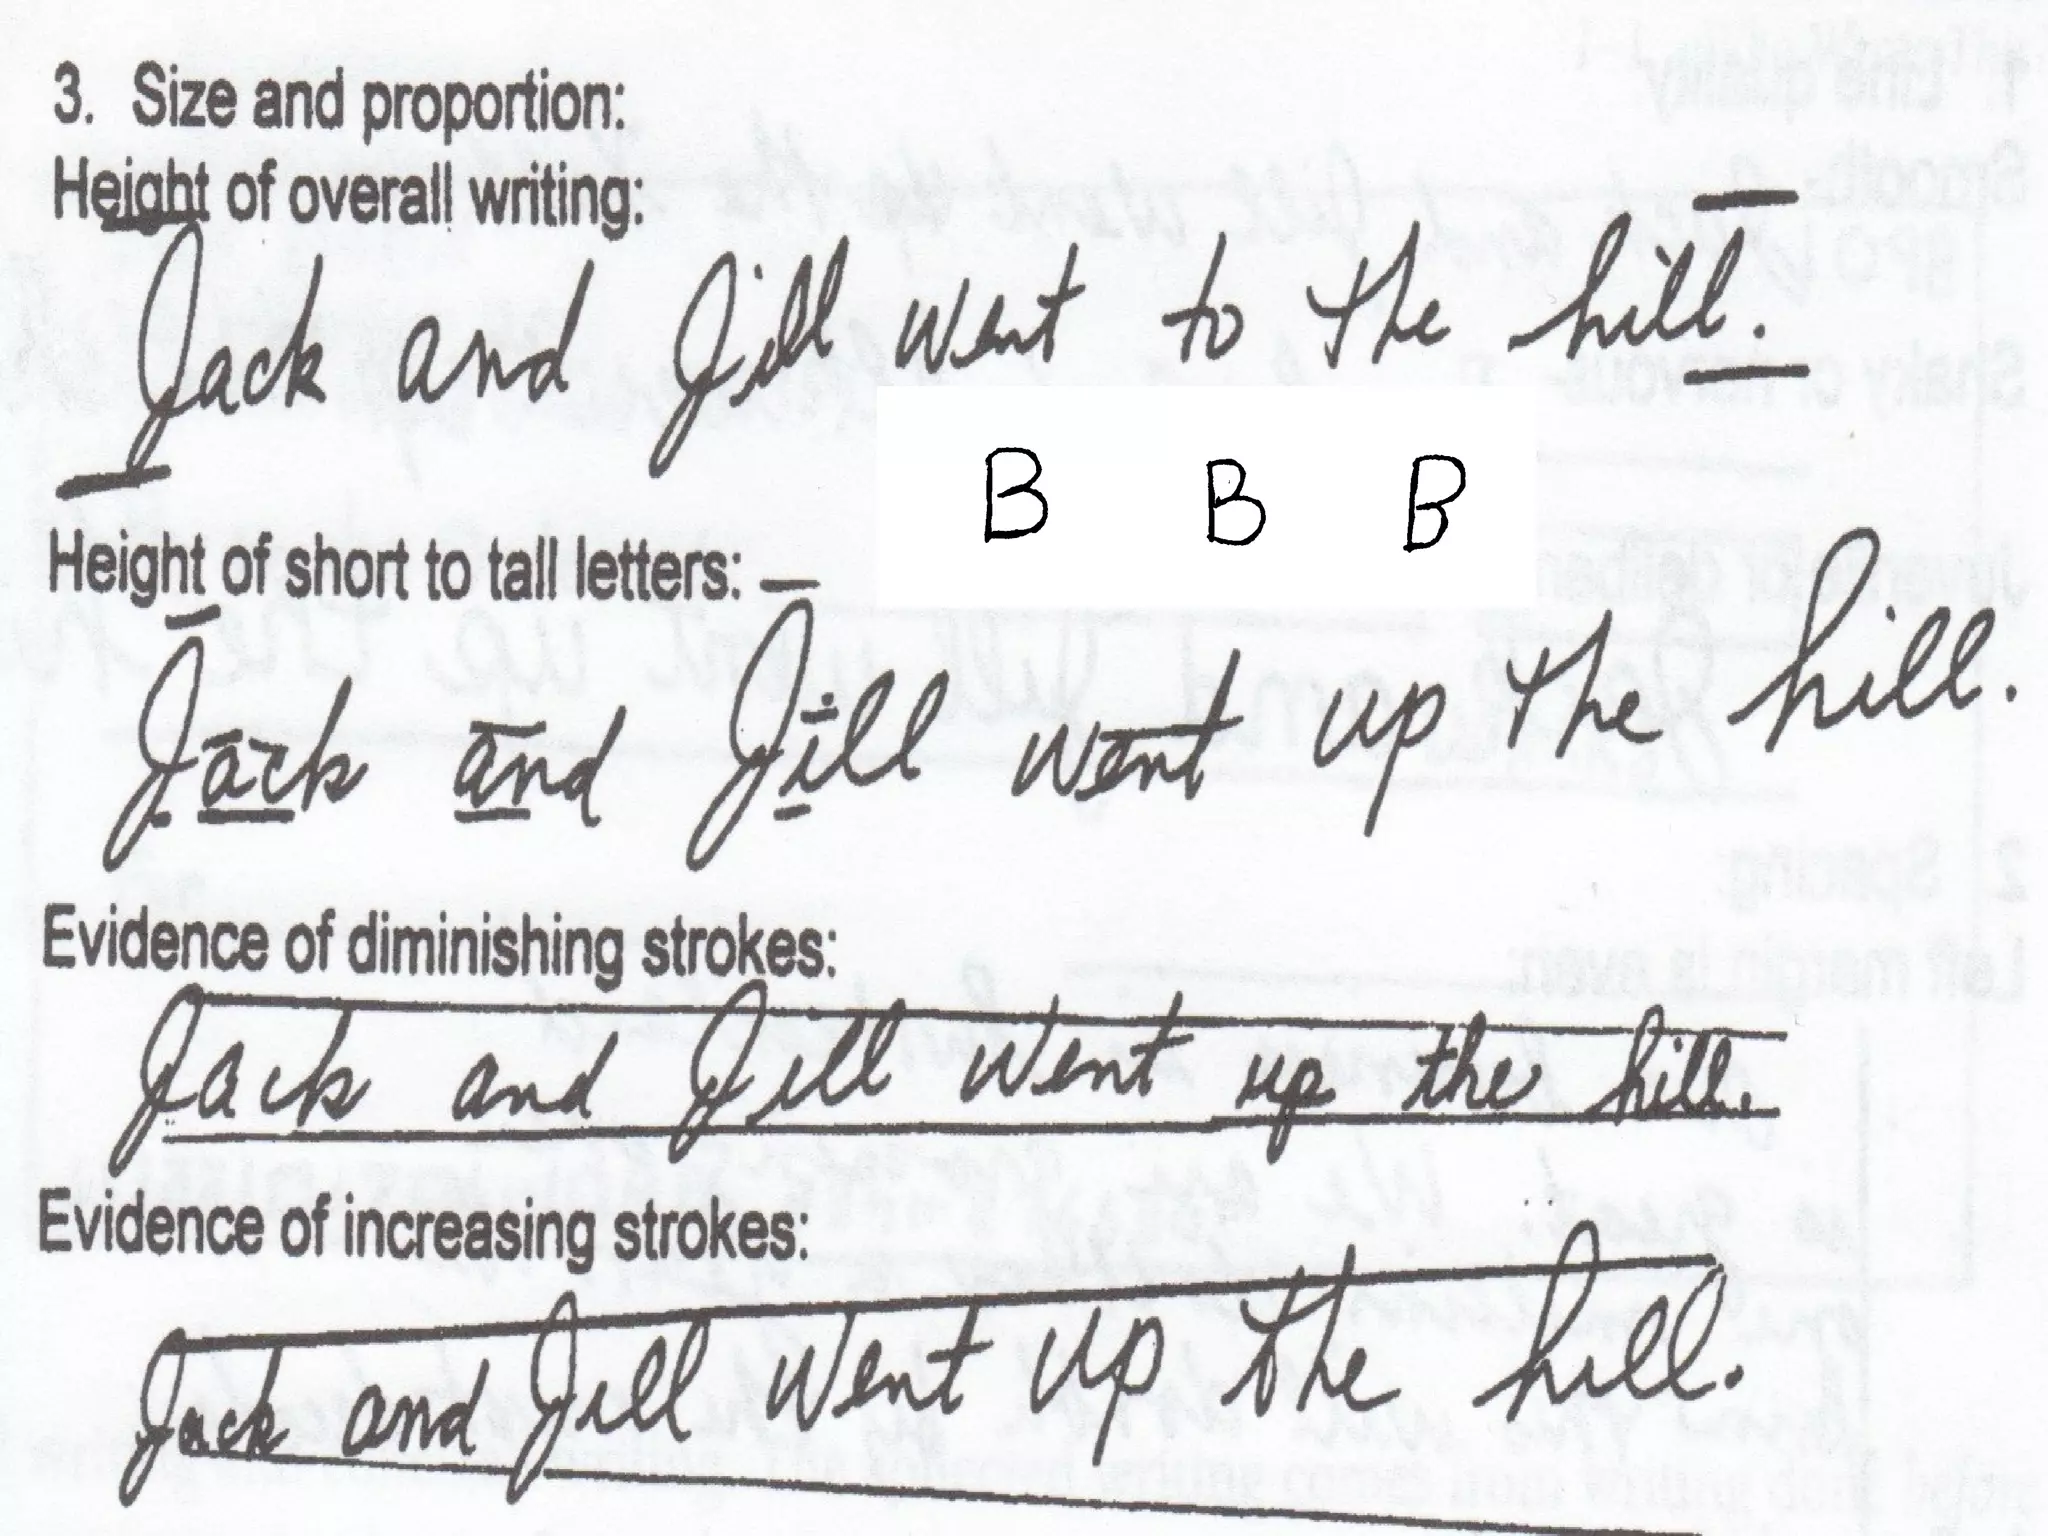 3. Size and proportion:
Height of overall writing:
Jack and Jill went to the hill.
B B B
Height of short to tall letters:
Jack and Jill went up the hill.
Evidence of diminishing strokes:
Jack and Jill went up the hill.
Evidence of increasing strokes:
Jack and Jill went up the hill.